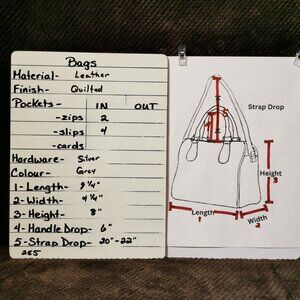 Bags
Material- Leather
Finish- Quilted
Pockets - IN OUT
-zips 2
-slips 4
-cards
Hardware- Silver
Colour- Grey
1- Length- 9 1/4"
2- Width- 4 1/4"
3- Height- 8"
4- Handle Drop- 6"
5- Strap Drop- 20"-22"
255
Strap Drop
Height
3
Length
1
Width
2